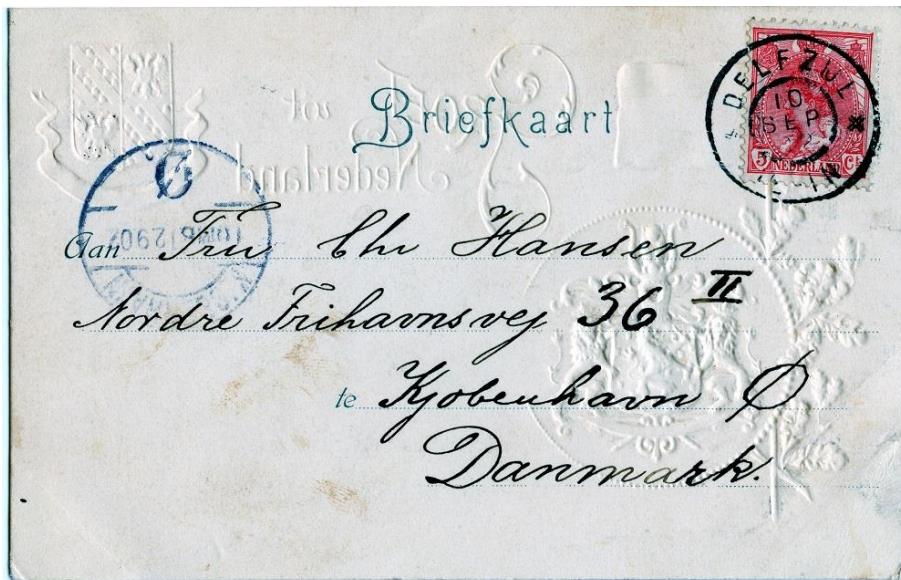 Briefkaart
DELFZIJL
10
SEP
5 NEDERLAND Ct
Groet uit
Nederland
Aan Fru Chr Hansen
Nordre Frihavnsvej 36 II
te Kjøbenhavn Ø
Danmark.